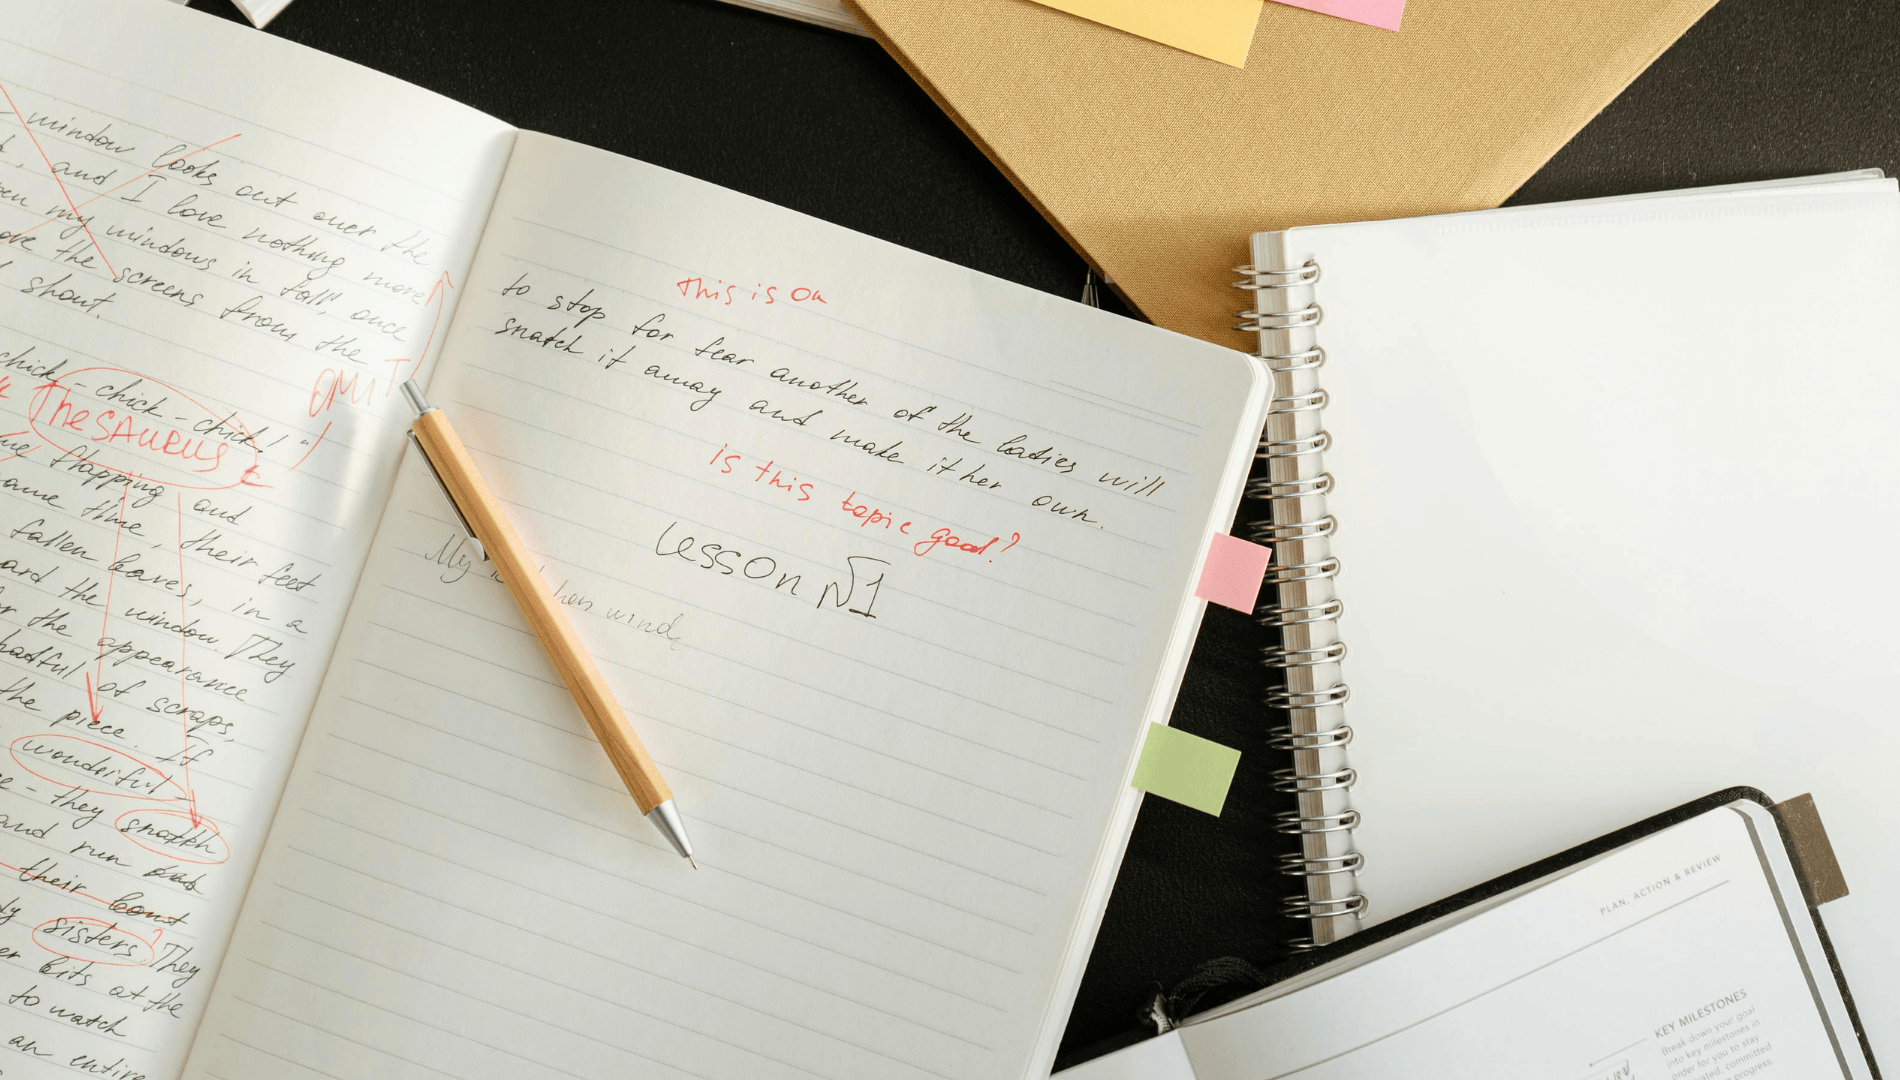 window looks out over the
, and I love nothing more
my windows in fall, once
the screens from the
shout.
OMIT
chick - chick - chick!"
Thesaurus
flapping and
time, their feet
fallen leaves, in a
the window. They
the appearance
of scraps,
the piece. If
wonderful -
- they snatch
and run
their
sisters? They
bits at the
to watch
an entire
This is OK
to stop for fear another of the ladies will
snatch it away and make it her own.
is this topic good?
Lesson №1
My
wind
PLAN, ACTION & REVIEW
KEY MILESTONES
Break down your goal
into key milestones in
order for you to stay
committed
progress.